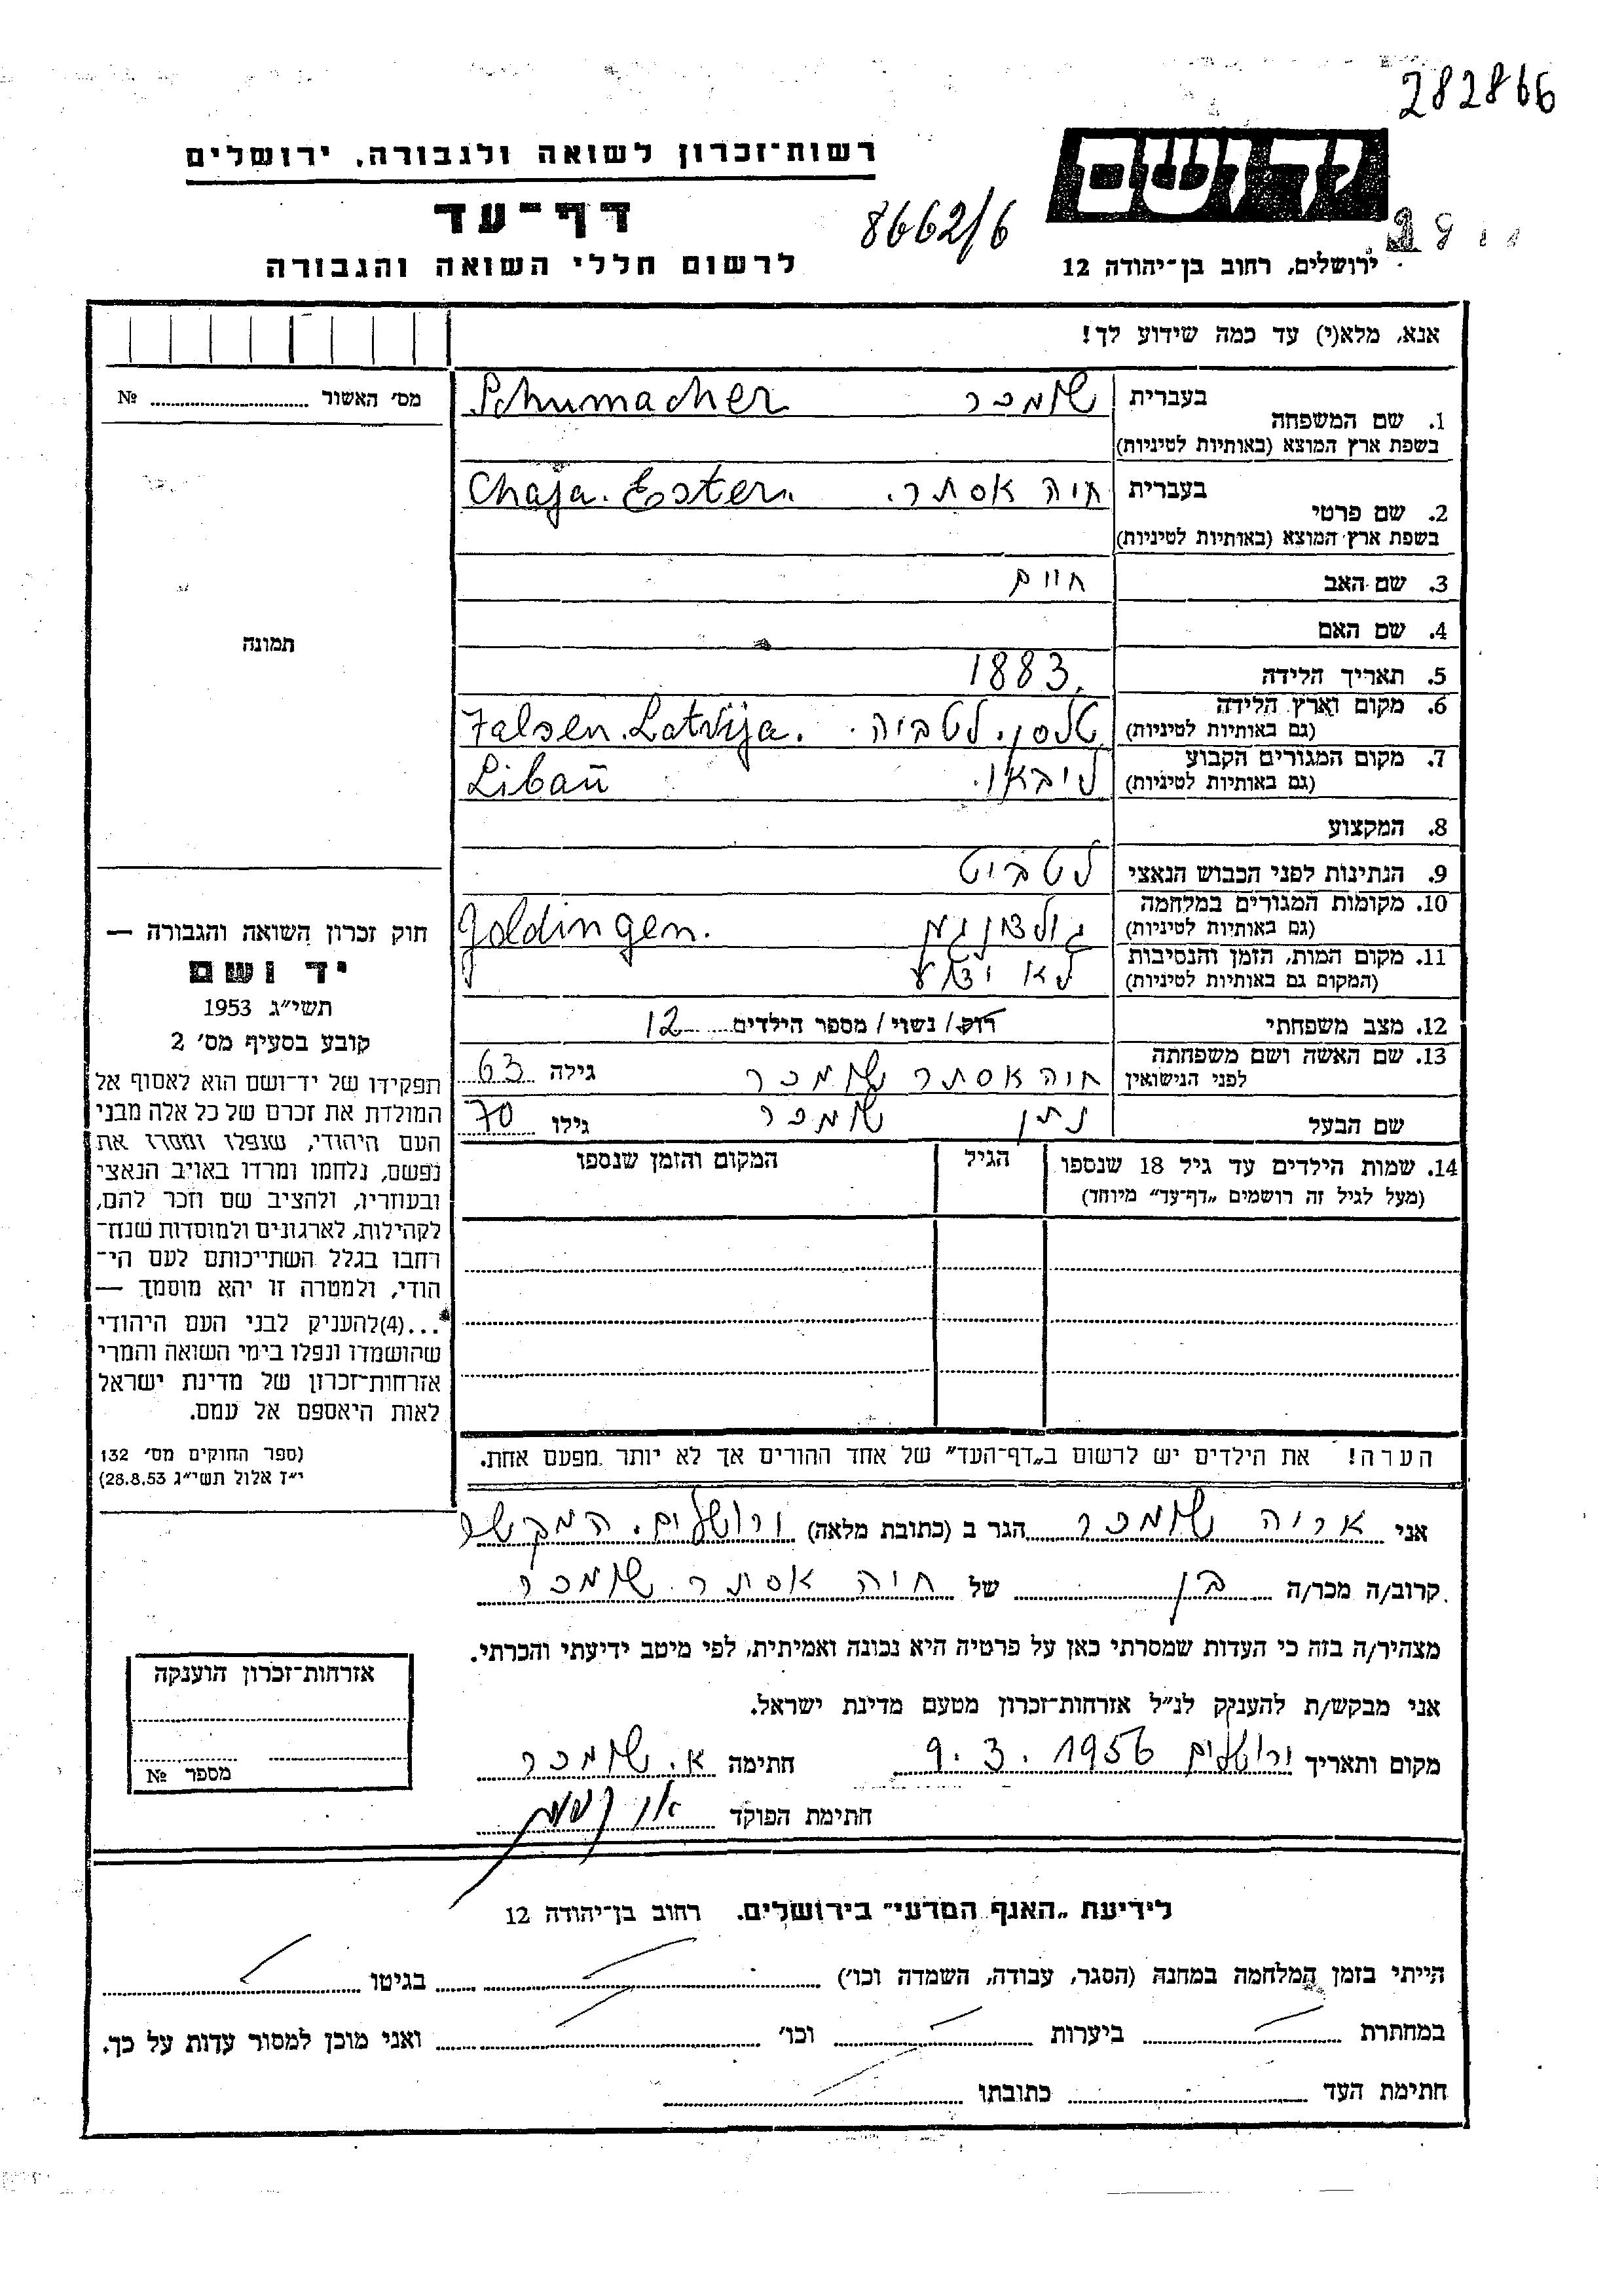 282866
יד ושם
רשות־זכרון לשואה ולגבורה, ירושלים
דף־עד
8662/6
לרשום חללי השואה והגבורה
ירושלים, רחוב בן־יהודה 12
אנא, מלא(י) עד כמה שידוע לך!
מס׳ האשור № 
תמונה
1. שם המשפחה בעברית שומכר Schumacher
בשפת ארץ המוצא (באותיות לטיניות)
2. שם פרטי בעברית חיה אסתר. Chaja. Ester.
בשפת ארץ המוצא (באותיות לטיניות)
3. שם האב חיים
4. שם האם
5. תאריך הלידה 1883.
6. מקום וארץ הלידה טלסן. לטביה. Talsen. Latvija.
(גם באותיות לטיניות)
7. מקום המגורים הקבוע ליבאו. Libaū
(גם באותיות לטיניות)
8. המקצוע
9. הנתינות לפני הכבוש הנאצי לטביט
10. מקומות המגורים במלחמה גולדינגען Goldingen.
(גם באותיות לטיניות)
11. מקום המות, הזמן והנסיבות לא ידוע
(המקום גם באותיות לטיניות)
12. מצב משפחתי רוק/ נשוי/ מספר הילדים 12
13. שם האשה ושם משפחתה חיה אסתר שומכר גילה 63
לפני הנישואין
שם הבעל נתן שומכר גילו 70
14. שמות הילדים עד גיל 18 שנספו הגיל המקום והזמן שנספו
(מעל לגיל זה רושמים „דף־עד״ מיוחד)
הערה! את הילדים יש לרשום ב„דף־העד״ של אחד ההורים אך לא יותר מפעם אחת.
חוק זכרון השואה והגבורה —
יד ושם
תשי״ג 1953
קובע בסעיף מס׳ 2
תפקידו של יד־ושם הוא לאסוף אל
המולדת את זכרם של כל אלה מבני
העם היהודי, שנפלו ומסרו את
נפשם, נלחמו ומרדו באויב הנאצי
ובעוזריו, ולהציב שם וזכר להם,
לקהילות, לארגונים ולמוסדות שנח־
רחבו בגלל השתייכותם לעם הי־
הודי, ולמטרה זו יהא מוסמך —
...(4)להעניק לבני העם היהודי
שהושמדו ונפלו בימי השואה והמרי
אזרחות־זכרון של מדינת ישראל
לאות היאספם אל עמם.
(ספר החוקים מס׳ 132
י״ז אלול תשי״ג 28.8.53)
אני אריה שומכר הגר ב (כתובת מלאה) ירושלים. המקשר
קרוב/ה מכר/ה בן של חיה אסתר שומכר
מצהיר/ה בזה כי העדות שמסרתי כאן על פרטיה היא נכונה ואמיתית, לפי מיטב ידיעתי והכרתי.
אני מבקש/ת להעניק לנ״ל אזרחות־זכרון מטעם מדינת ישראל.
מקום ותאריך ירושלים 9.3.1956 חתימה א. שומכר
חתימת הפוקד
אזרחות־זכרון הוענקה
מספר №
לידיעת „האגף המדעי״ בירושלים. רחוב בן־יהודה 12
הייתי בזמן המלחמה במחנה (הסגר, עבודה, השמדה וכו׳) בגיטו
במחתרת ביערות וכו׳ ואני מוכן למסור עדות על כך.
חתימת העד כתובתו